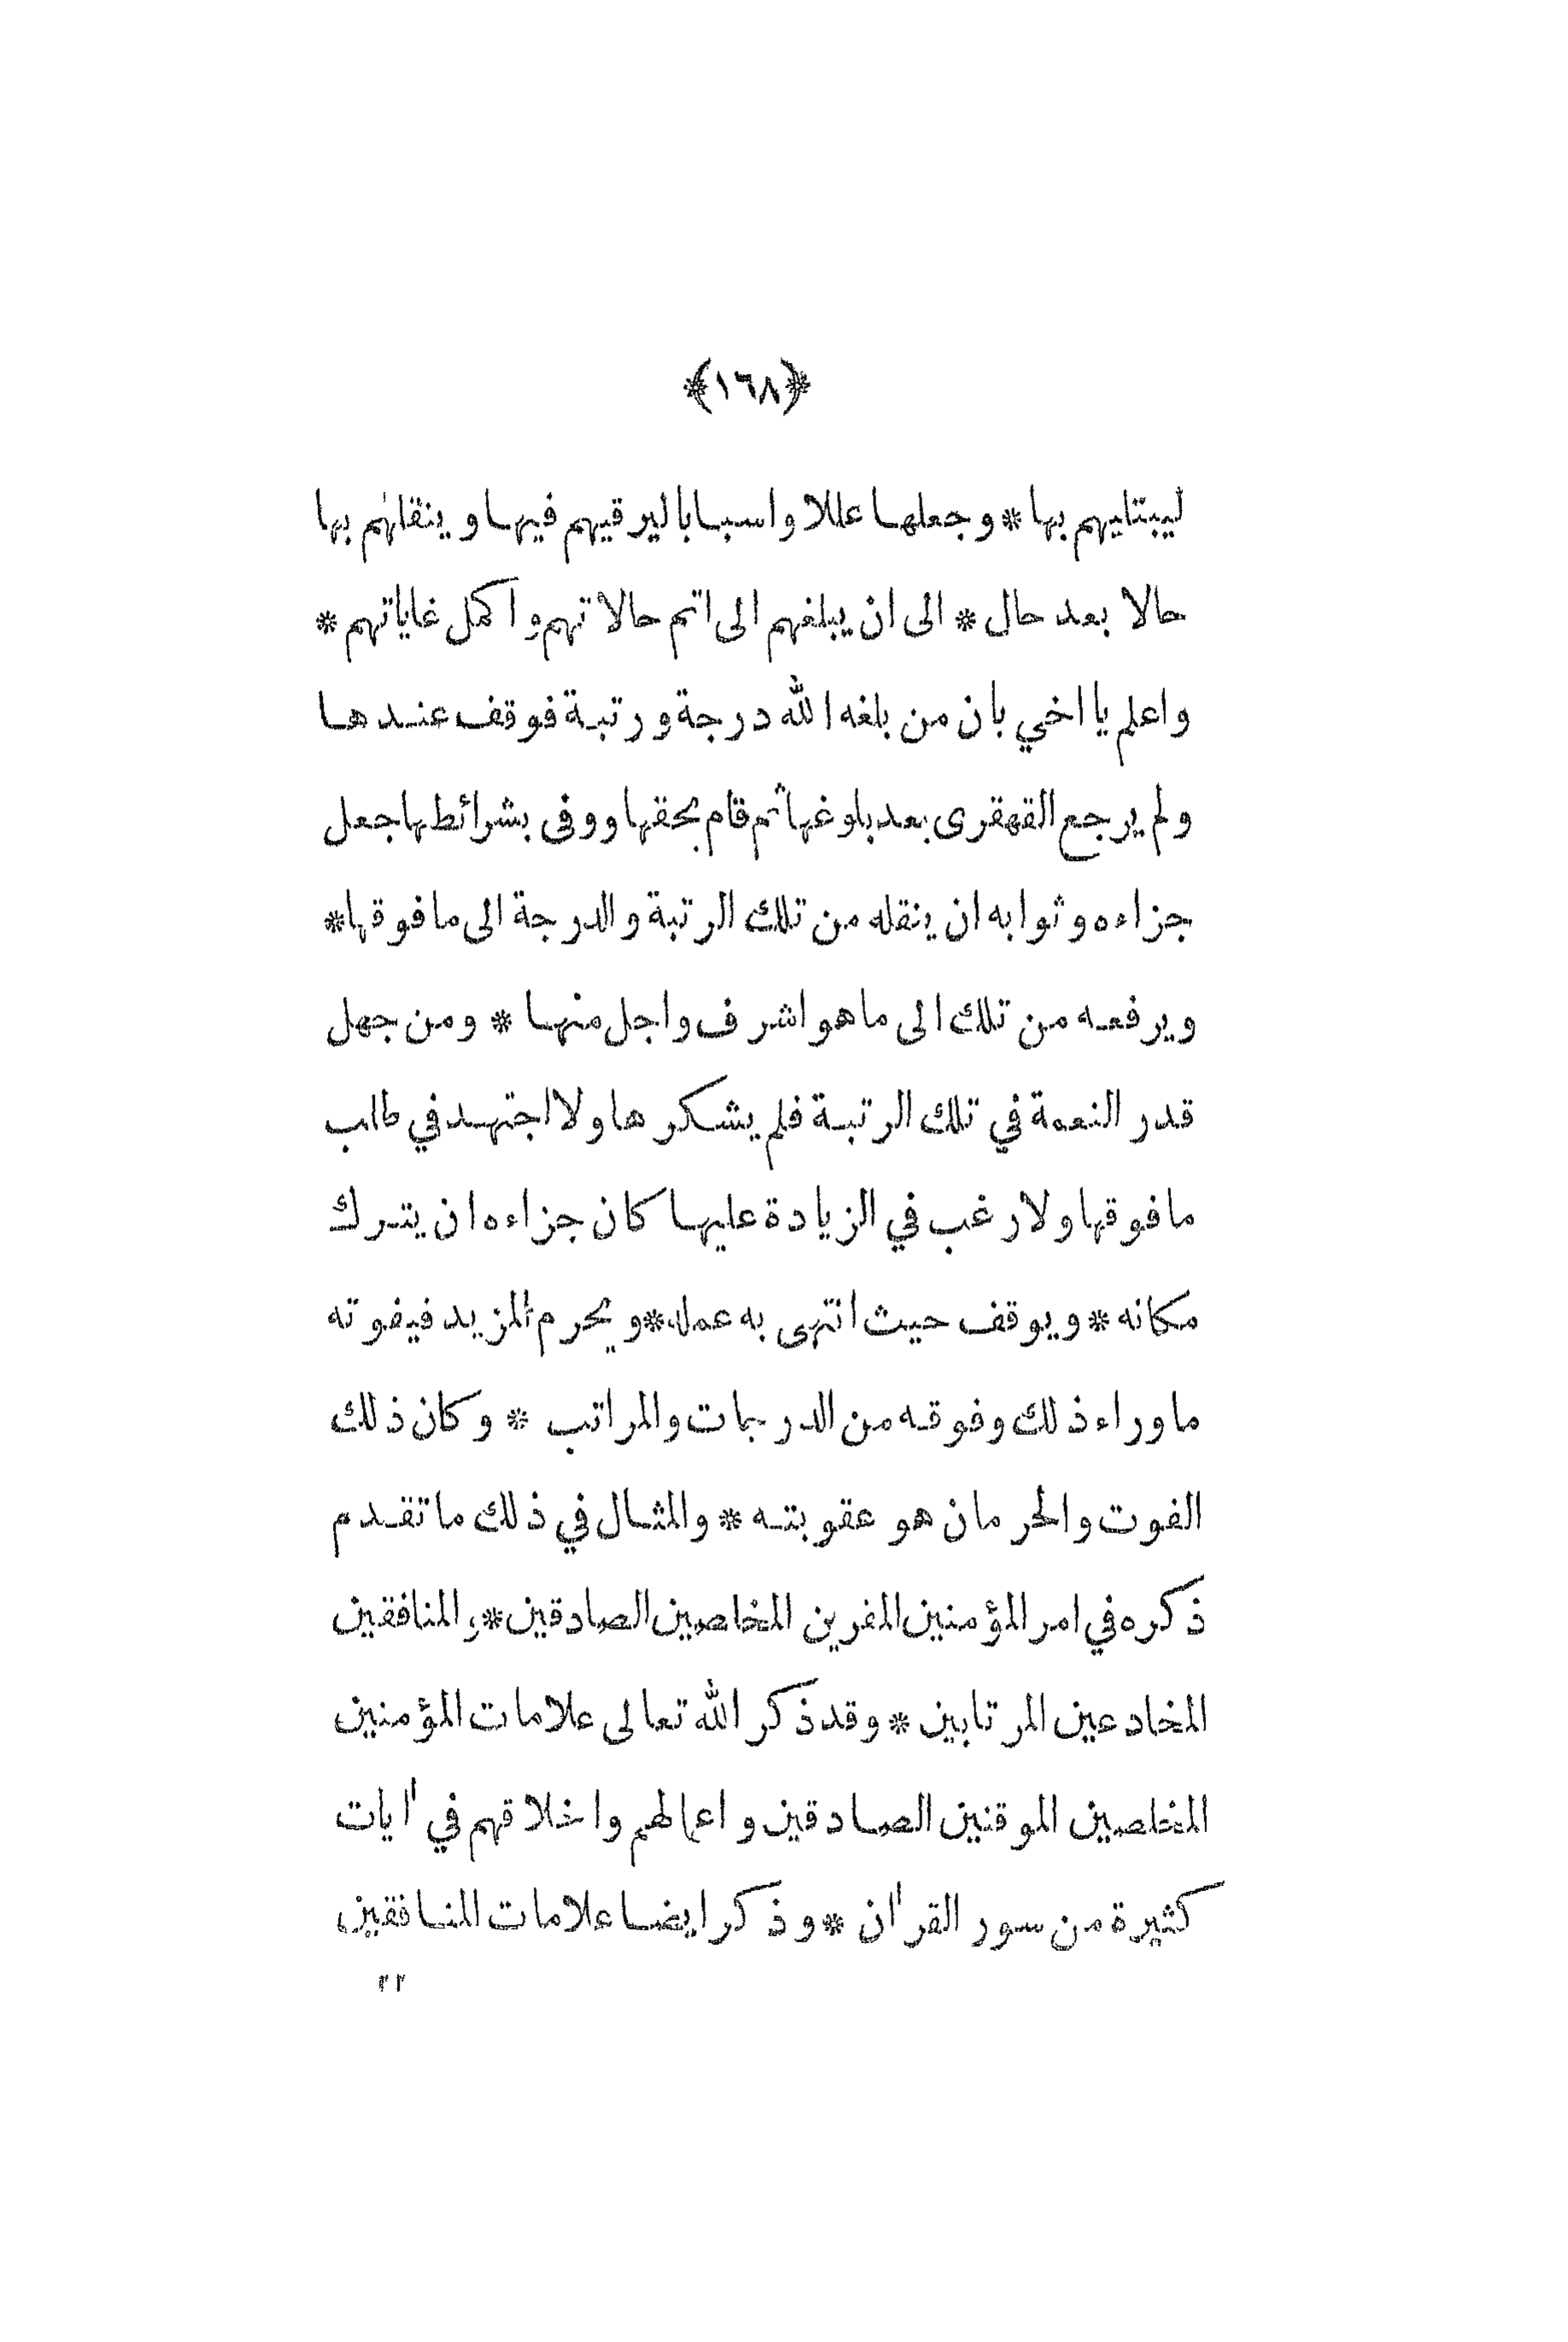 ﴿١٦٨﴾
ليبتليهم بها * وجعلها عللا واسبابا ليرقيهم فيها وينقلهم بها
حالا بعد حال * الى ان يبلغهم الى اتم حالاتهم واكمل غاياتهم *
واعلم يا اخي بان من بلغه الله درجة ورتبة فوقف عندها
ولم يرجع القهقرى بعد بلوغها ثم قام بحقها ووفى بشرائطها جعل
جزاءه وثوابه ان ينقله من تلك الرتبة والدرجة الى ما فوقها *
ويرفعه من تلك الى ما هو اشرف واجل منها * ومن جهل
قدر النعمة في تلك الرتبة فلم يشكرها ولا اجتهد في طلب
ما فوقها ولا رغب في الزيادة عليها كان جزاءه ان يترك
مكانه * ويوقف حيث انتهى به عمله * ويحرم المزيد فيفوته
ما وراء ذلك وفوقه من الدرجات والمراتب * وكان ذلك
الفوت والحرمان هو عقوبته * والمثال في ذلك ما تقدم
ذكره في امر المؤمنين المقرين المخلصين الصادقين * والمنافقين
المخادعين المرتابين * وقد ذكر الله تعالى علامات المؤمنين
المخلصين الموقنين الصادقين واعمالهم واخلاقهم في اٰيات
كثيرة من سور القراٰن * وذكر ايضا علامات المنافقين